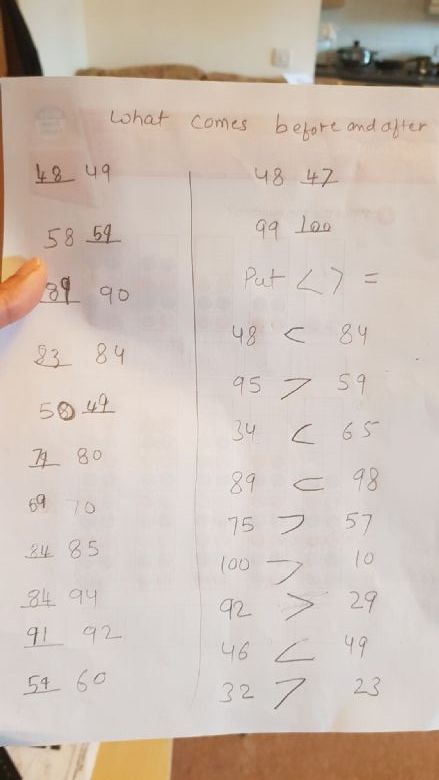 What comes before and after
48 49
58 59
89 90
83 84
50 49
79 80
69 70
84 85
84 94
91 92
59 60
48 47
99 100
Put < > =
48 < 84
95 > 59
34 < 65
89 < 98
75 > 57
100 > 10
92 > 29
46 < 49
32 > 23